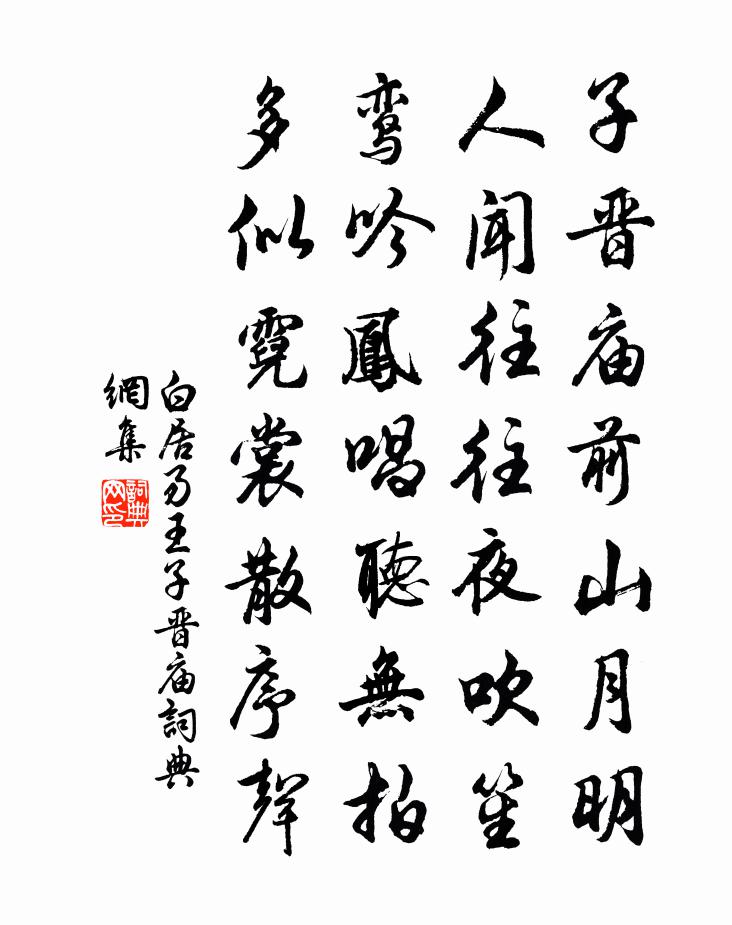 子晋庙前山月明
人闻往往夜吹笙
鸾吟鳳唱聽無拍
多似霓裳散序聲
白居易王子晋庙詞典
網集
詞典网印